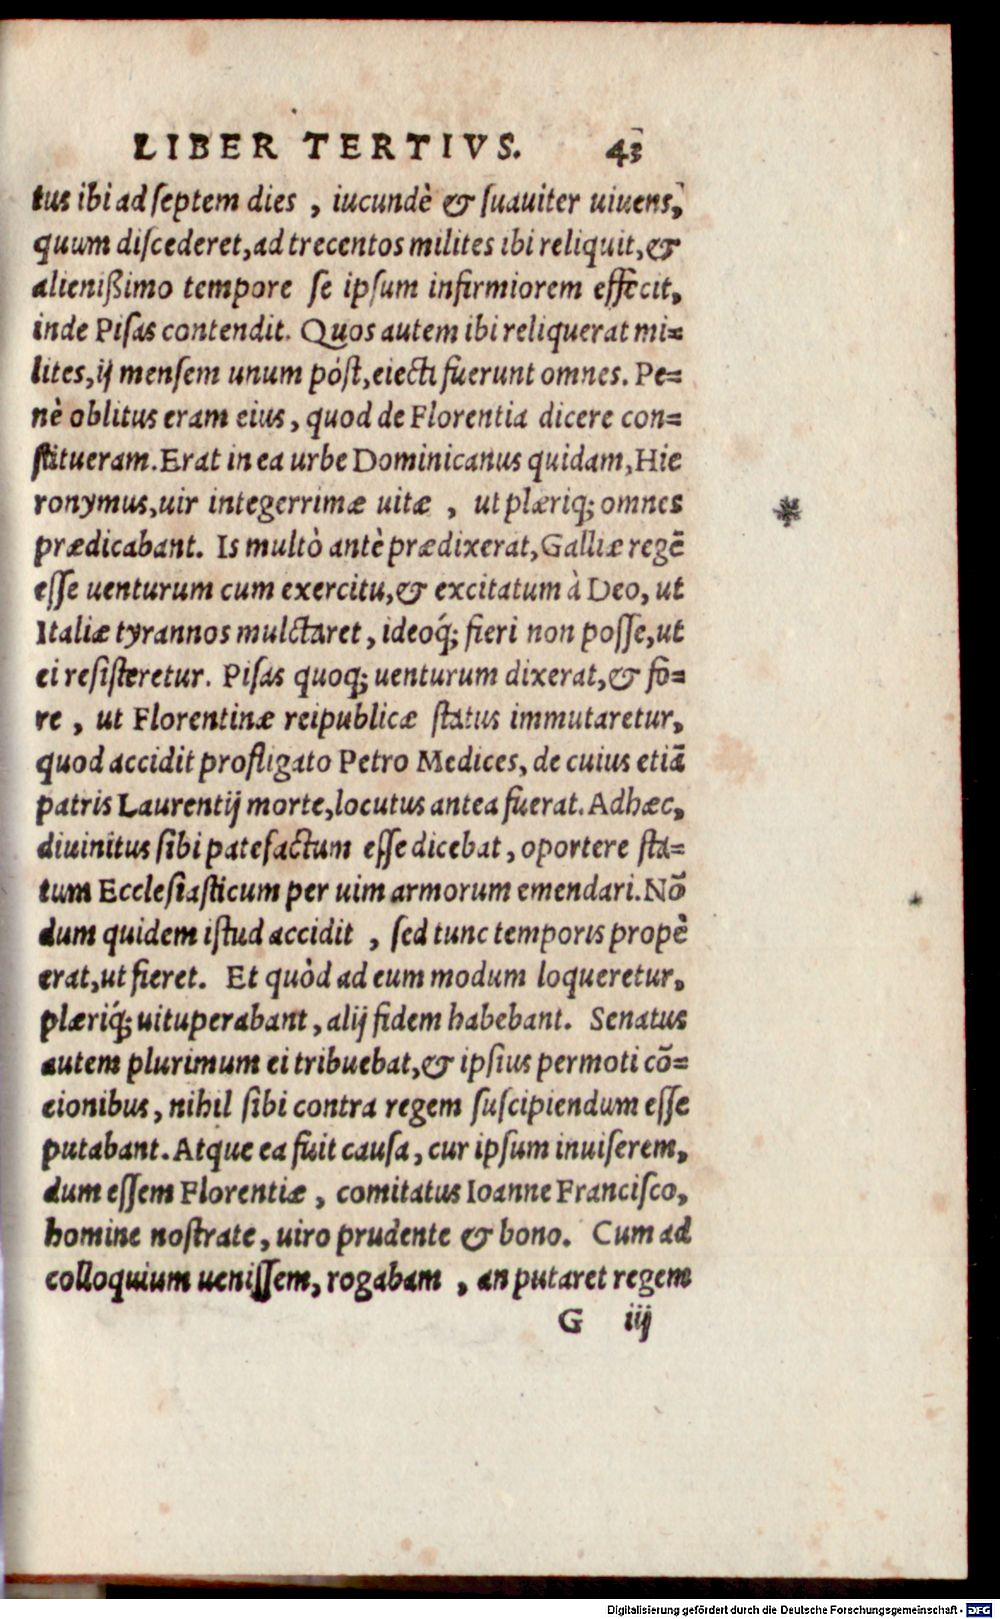 LIBER TERTIVS. 43
tus ibi ad ſeptem dies , iucundè & ſuauiter uiuens,
quum diſcederet, ad trecentos milites ibi reliquit, &
alienißimo tempore ſe ipſum infirmiorem effecit,
inde Piſas contendit. Quos autem ibi reliquerat mi-
lites, ij menſem unum póſt, eiecti fuerunt omnes. Pe-
nè oblitus eram eius, quod de Florentia dicere con-
ſtitueram. Erat in ea urbe Dominicanus quidam, Hie
ronymus, uir integerrimæ uitæ , ut plæriq; omnes
prædicabant. Is multò antè prædixerat, Galliæ regē
eſſe uenturum cum exercitu, & excitatum à Deo, ut
Italiæ tyrannos mulctaret, ideoq́; fieri non poſſe, ut
ei reſiſteretur. Piſas quoq; uenturum dixerat, & fo-
re , ut Florentinæ reipublicæ ſtatus immutaretur,
quod accidit profligato Petro Medices, de cuius etiā
patris Laurentij morte, locutus antea fuerat. Adhæc,
diuinitus ſibi patefactum eſſe dicebat, oportere ſta-
tum Eccleſiaſticum per uim armorum emendari. Nō
dum quidem iſtud accidit , ſed tunc temporis propè
erat, ut fieret. Et quòd ad eum modum loqueretur,
plæriq́; uituperabant, alij fidem habebant. Senatus
autem plurimum ei tribuebat, & ipſius permoti cō-
cionibus, nihil ſibi contra regem ſuſcipiendum eſſe
putabant. Atque ea fuit cauſa, cur ipſum inuiſerem,
dum eſſem Florentiæ , comitatus Ioanne Franciſco,
homine noſtrate, uiro prudente & bono. Cum ad
colloquium ueniſſem, rogabam , an putaret regem
G iij
Digitalisierung gefördert durch die Deutsche Forschungsgemeinschaft - DFG